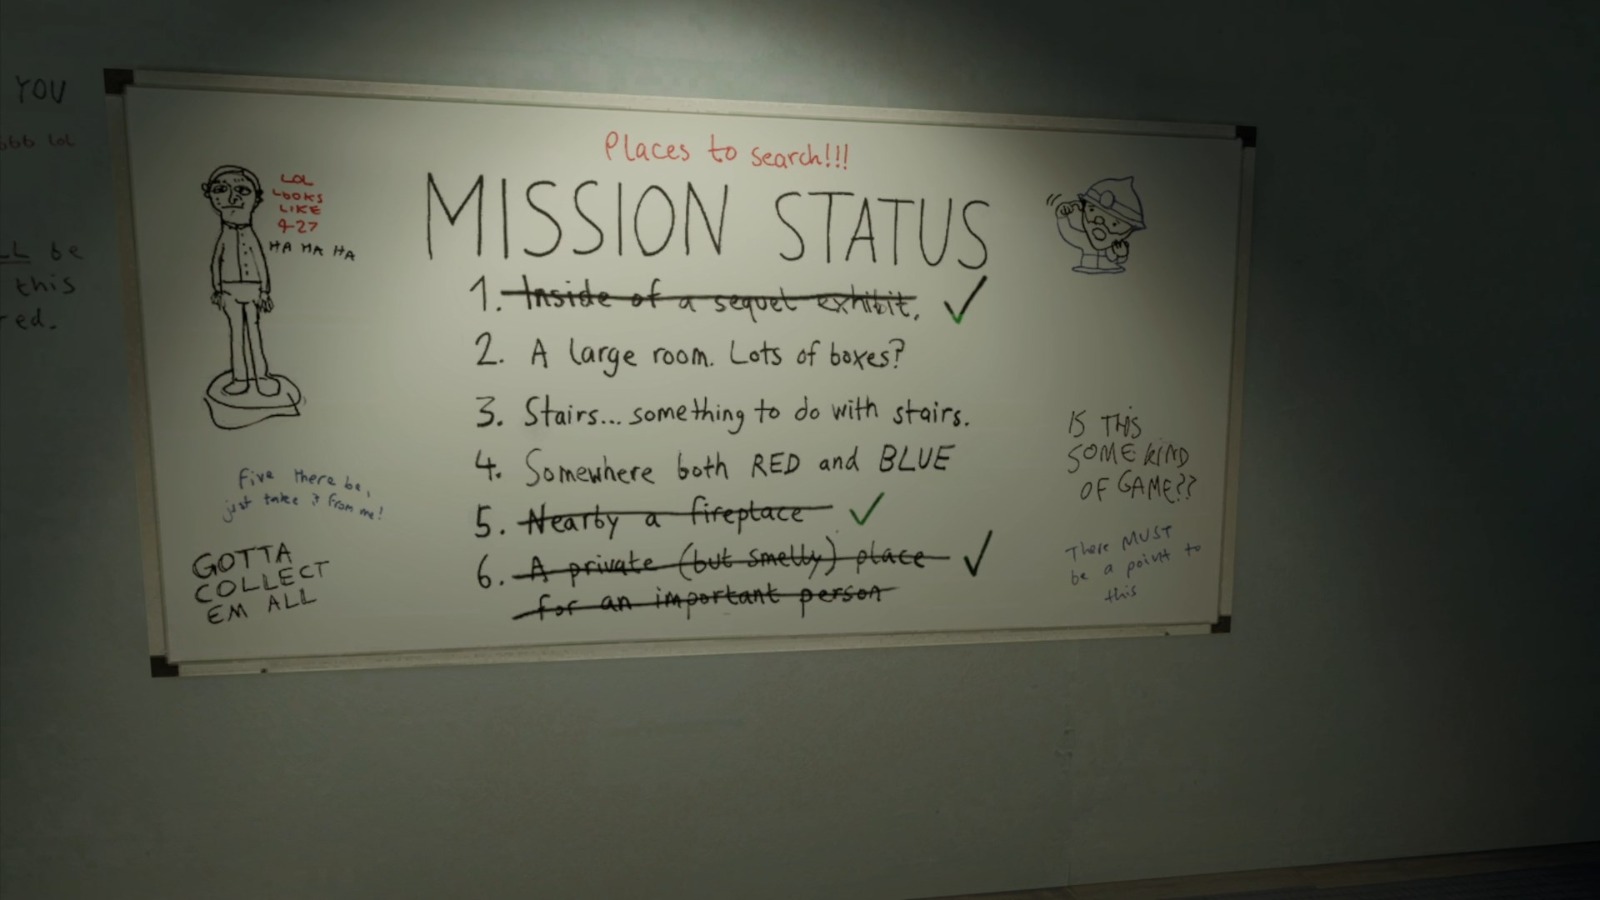 YOU
lol
be
this
Places to search!!!
MISSION STATUS
LOL
LOOKS
LIKE
HA HA HA
1. Inside of a sequel exhibit. ✓
2. A large room. Lots of boxes?
3. Stairs... something to do with stairs.
4. Somewhere both RED and BLUE
5. Nearby a fireplace ✓
6. A private (but smelly) place ✓
for an important person
Five there be,
just take it from me!
GOTTA
COLLECT
EM ALL
IS THIS
SOME KIND
OF GAME??
There MUST
be a point to
this